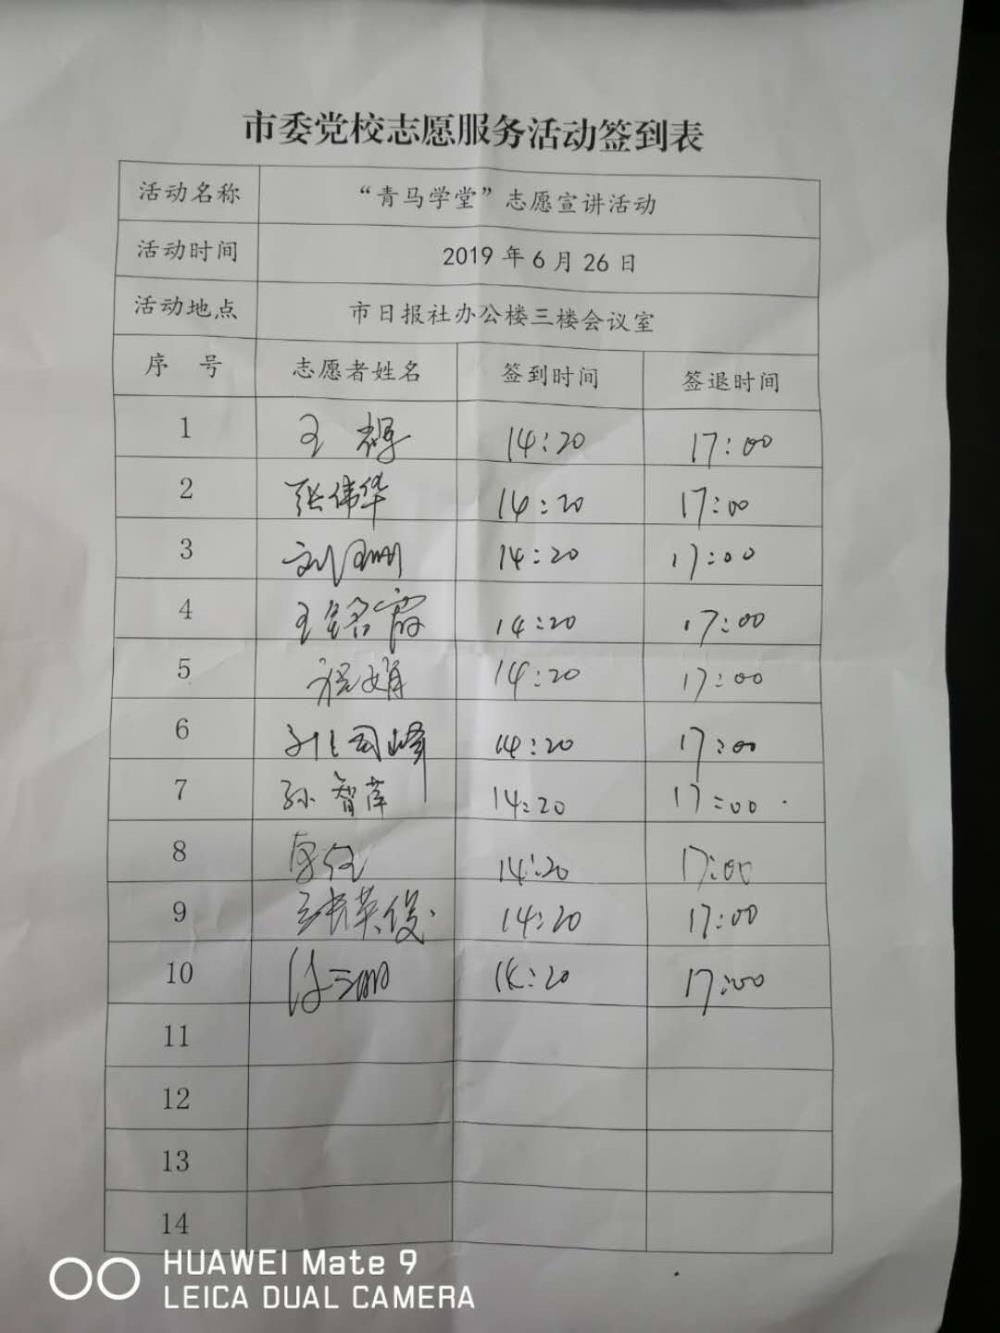 市委党校志愿服务活动签到表
活动名称 “青马学堂”志愿宣讲活动
活动时间 2019 年 6 月 26 日
活动地点 市日报社办公楼三楼会议室
序 号 志愿者姓名 签到时间 签退时间
1 王 14:20 17:00
2 张伟华 14:20 17:00
3 刘珊 14:20 17:00
4 王铭霞 14:20 17:00
5 程娟 14:20 17:00
6 国峰 14:20 17:00
7 孙智萍 14:20 17:00
8 14:20 17:00
9 张英俊 14:20 17:00
10 14:20 17:00
11
12
13
14
HUAWEI Mate 9
LEICA DUAL CAMERA